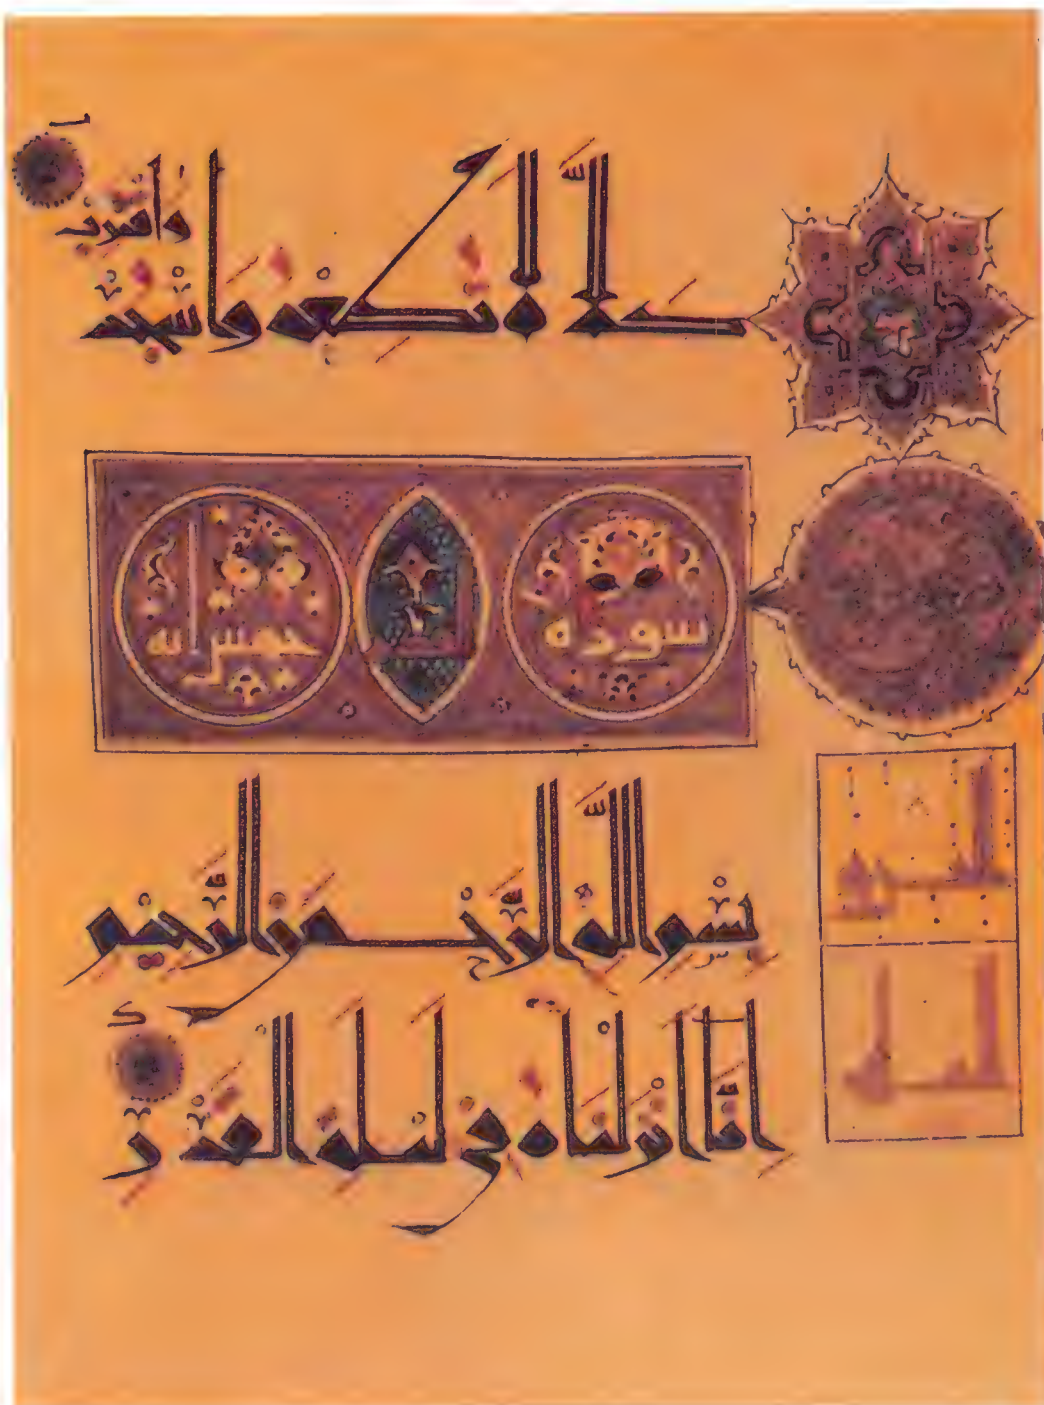 كَلَّا لَا تُطِعْهُ وَاسْجُدْ وَاقْتَرِبْ
سورة خمس آية
بِسْمِ اللَّهِ الرَّحْمَنِ الرَّحِيمِ
إِنَّا أَنْزَلْنَاهُ فِي لَيْلَةِ الْقَدْرِ